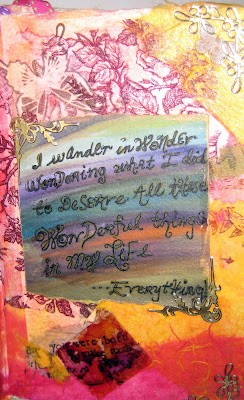 I wander in Wonder
Wondering what I did
to Deserve All these
WonDerful things
in my Life
...Everything
you were born